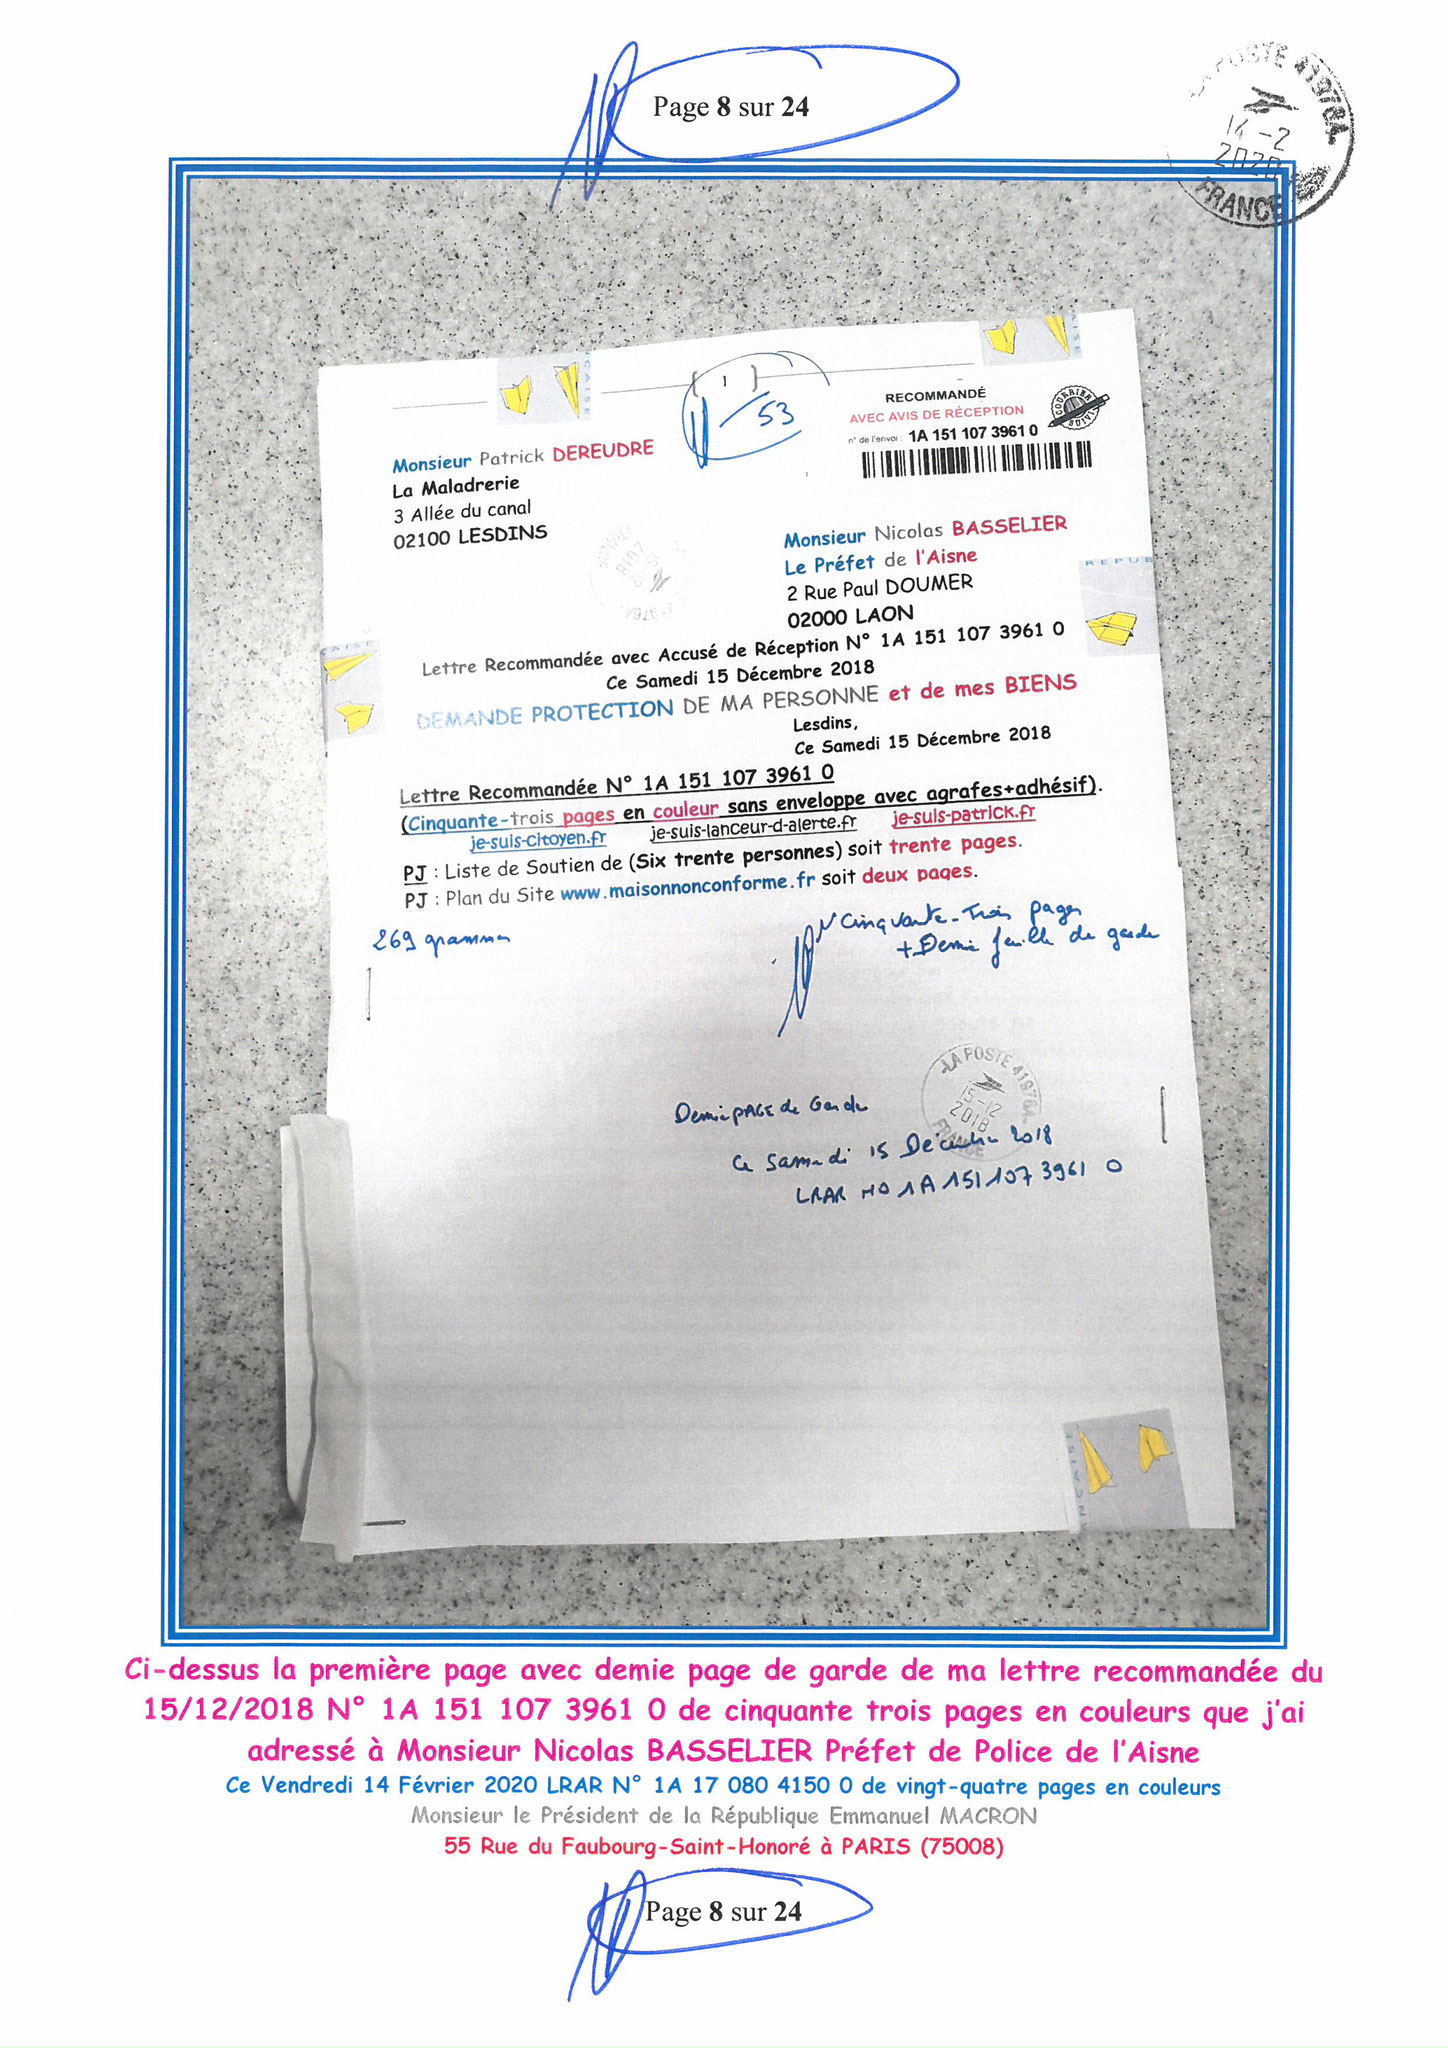 Page 8 sur 24
LA POSTE 41976A
14-2
2020
FRANCE
( 1 )
53
RECOMMANDÉ
AVEC AVIS DE RÉCEPTION
n° de l'envoi : 1A 151 107 3961 0
Monsieur Patrick DEREUDRE
La Maladrerie
3 Allée du canal
02100 LESDINS
Monsieur Nicolas BASSELIER
Le Préfet de l'Aisne
2 Rue Paul DOUMER
02000 LAON
Lettre Recommandée avec Accusé de Réception N° 1A 151 107 3961 0
Ce Samedi 15 Décembre 2018
DEMANDE PROTECTION DE MA PERSONNE et de mes BIENS
Lesdins,
Ce Samedi 15 Décembre 2018
Lettre Recommandée N° 1A 151 107 3961 0
(Cinquante-trois pages en couleur sans enveloppe avec agrafes+adhésif).
je-suis-citoyen.fr je-suis-lanceur-d-alerte.fr je-suis-patrick.fr
PJ : Liste de Soutien de (Six trente personnes) soit trente pages.
PJ : Plan du Site www.maisonnonconforme.fr soit deux pages.
269 grammes
Cinquante-Trois pages
+ Demie feuille de garde
LA POSTE 41976A
15-12
2018
FRANCE
Demie PAGE de Garde
Ce Samedi 15 Décembre 2018
LRAR N° 1A 151 107 3961 0
Ci-dessus la première page avec demie page de garde de ma lettre recommandée du
15/12/2018 N° 1A 151 107 3961 0 de cinquante trois pages en couleurs que j'ai
adressé à Monsieur Nicolas BASSELIER Préfet de Police de l'Aisne
Ce Vendredi 14 Février 2020 LRAR N° 1A 17 080 4150 0 de vingt-quatre pages en couleurs
Monsieur le Président de la République Emmanuel MACRON
55 Rue du Faubourg-Saint-Honoré à PARIS (75008)
Page 8 sur 24